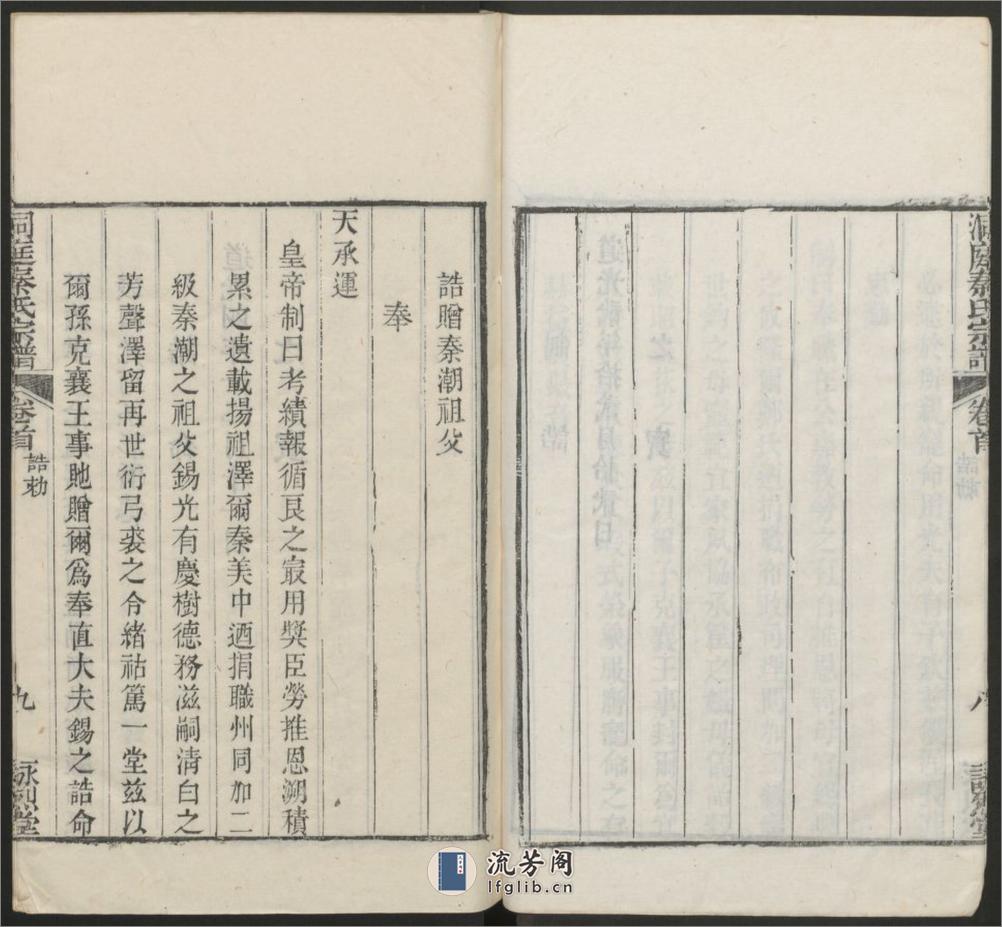 洞庭秦氏宗譜
卷首
誥勅
八
詠烈堂
誥贈秦潮祖父
奉
天承運
皇帝制曰考績報循良之冣用獎臣勞推恩溯積
累之遺載揚祖澤爾秦美中迺捐職州同加二
級秦潮之祖父錫光有慶樹德務滋嗣清白之
芳聲澤留再世衍弓裘之令緒祜篤一堂兹以
爾孫克襄王事貤贈爾爲奉直大夫錫之誥命
洞庭秦氏宗譜
卷首
誥勅
九
詠烈堂
流芳阁
lfglib.cn